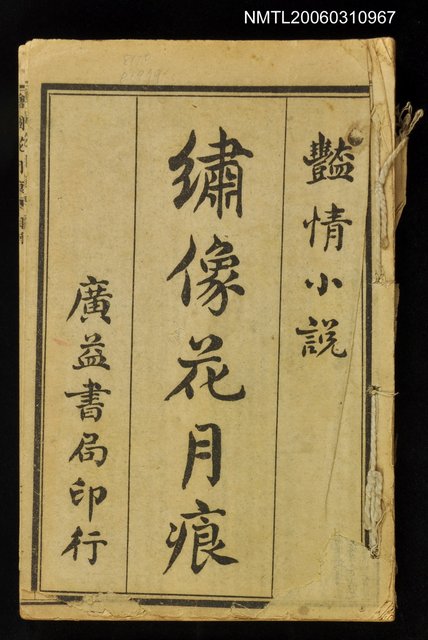 NMTL20060310967
豔情小說
繡像花月痕
廣益書局印行